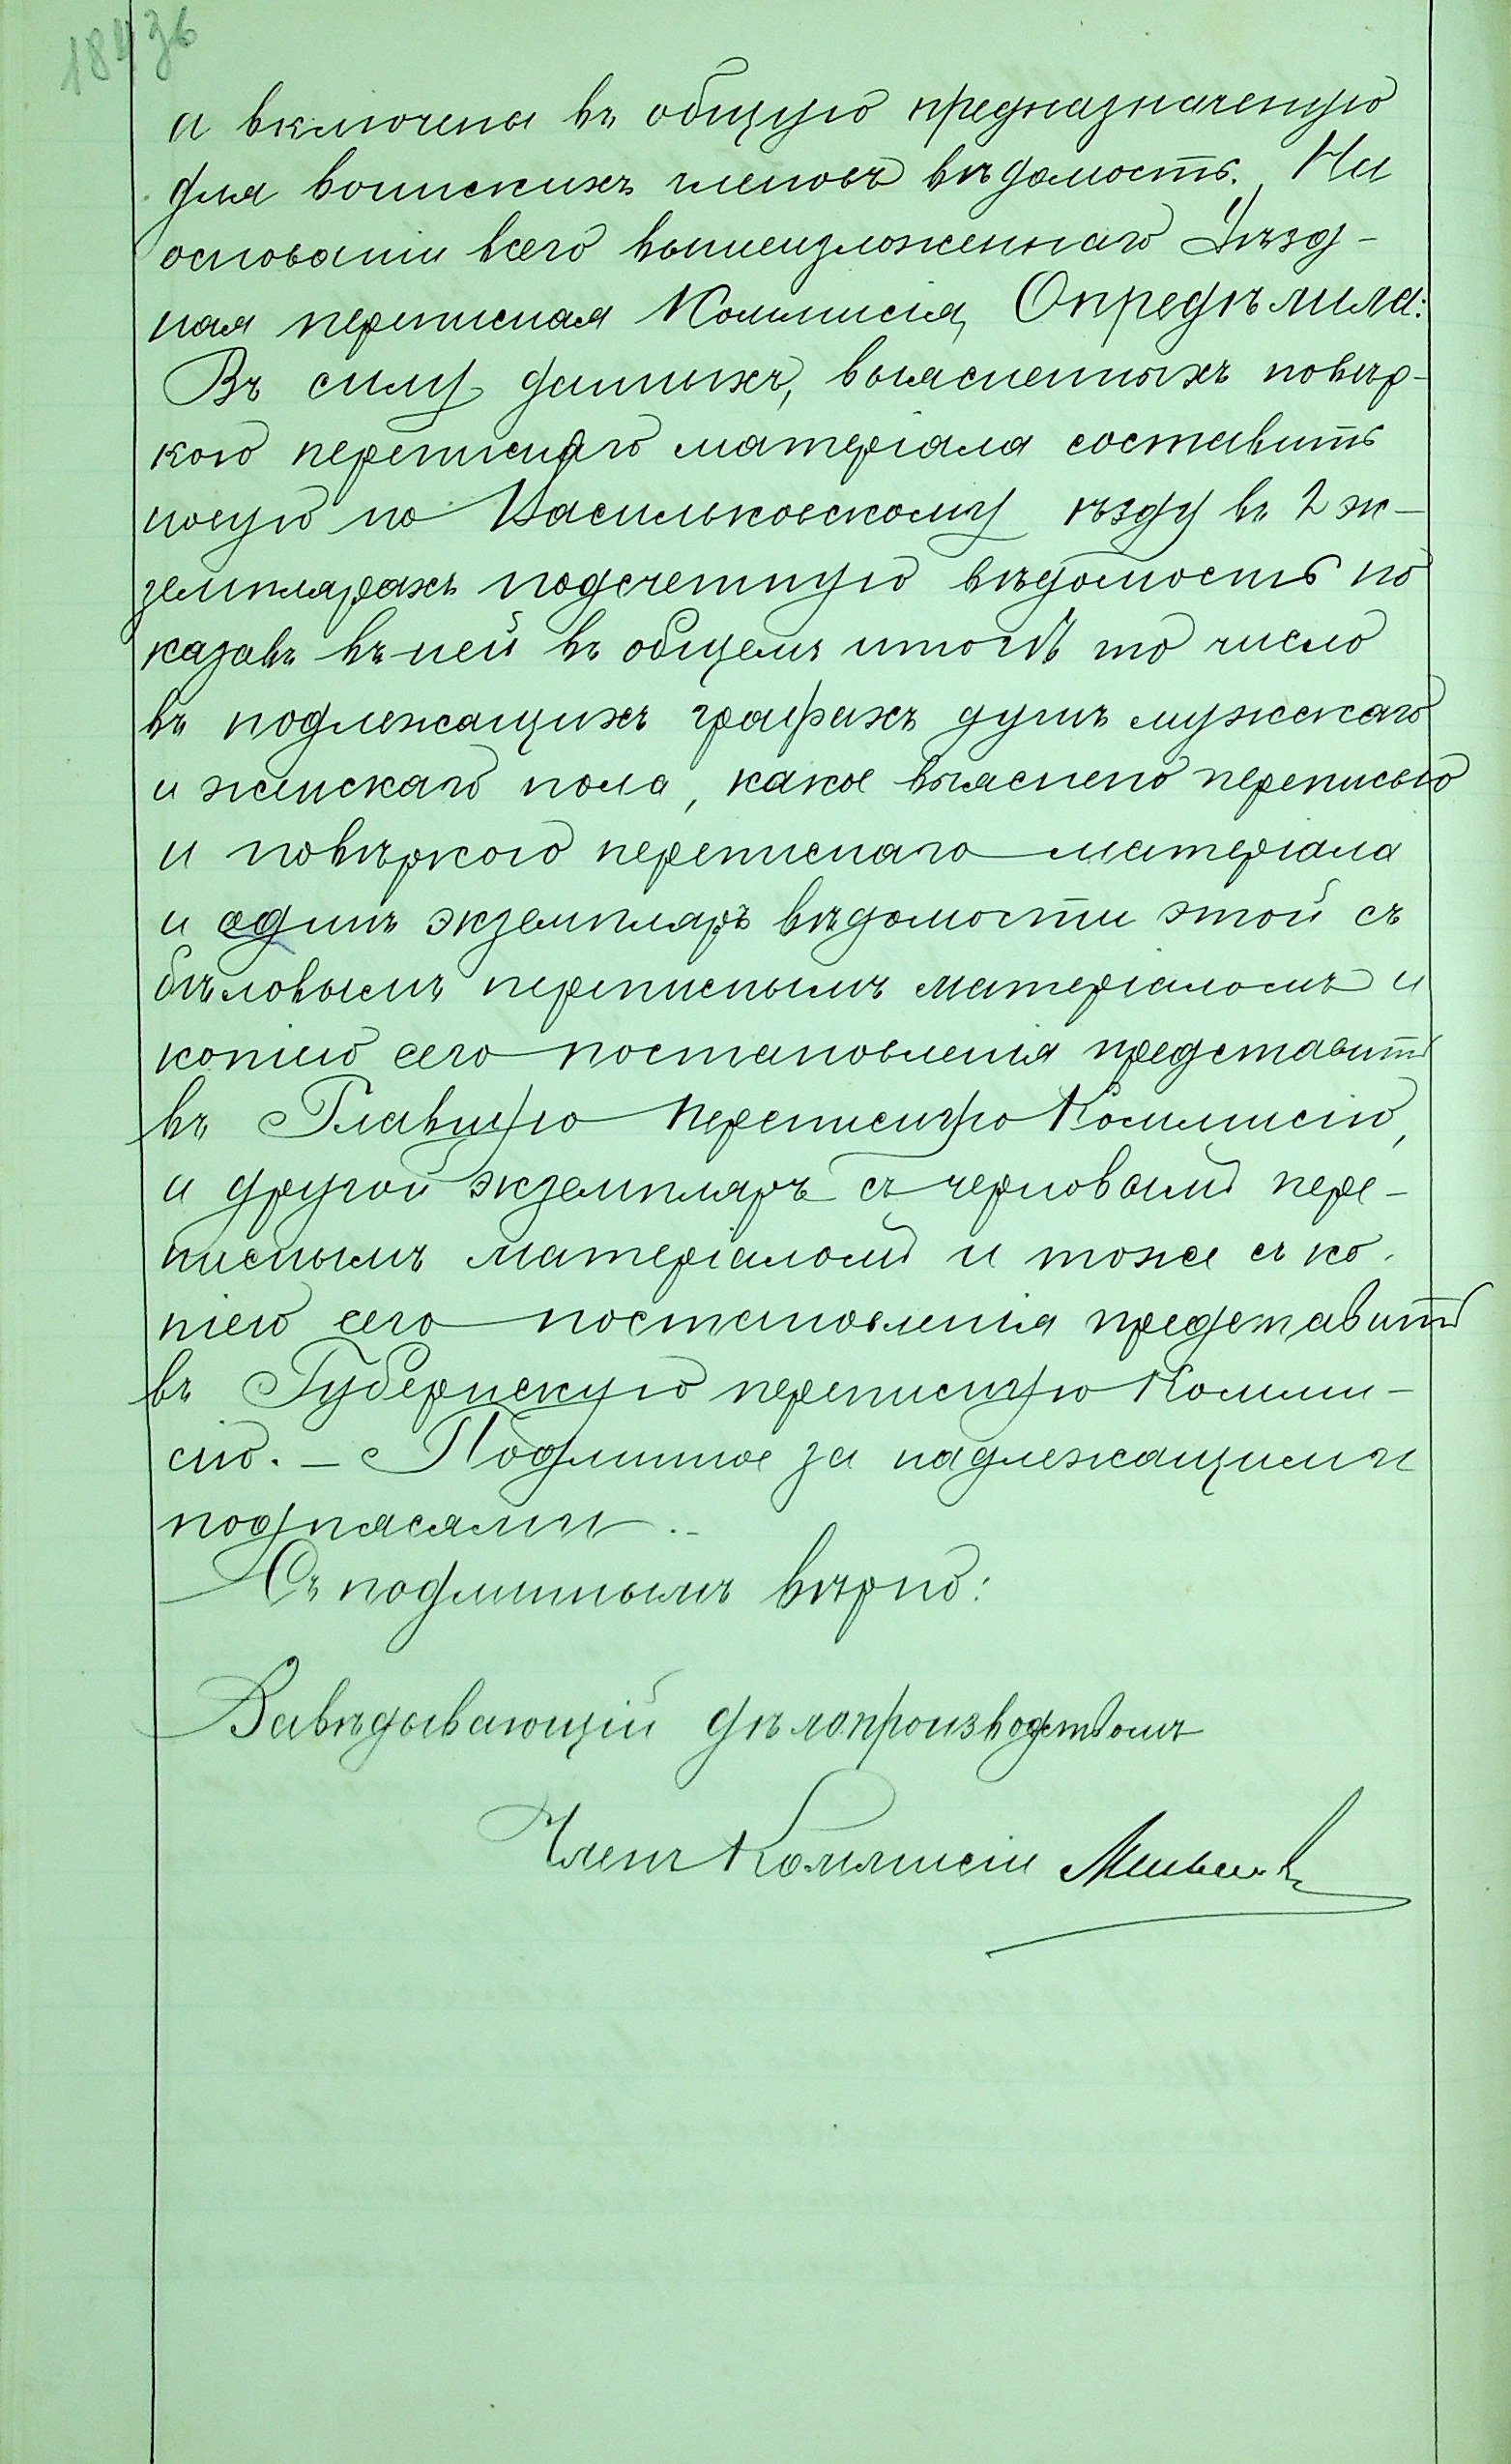 а включены въ общую предназначеную
для воинскихъ членовъ вѣдомость. На
основаніи всего вышеизложеннаго Уѣзд-
ная переписная Коммисія, Опредѣлила:
Въ силу данныхъ, выясненныхъ повѣр-
кою переписнаго матеріала составить
новую по Васильковскому уѣзду въ 2 эк-
земплярахъ подсчетную вѣдомость по
казавъ въ ней въ общемъ итогѣ то число
въ подлежащихъ графахъ душъ мужскаго
и женскаго пола, какое выяснено переписью
и повѣркою переписнаго матеріала
и одинъ экземпляръ вѣдомости этой съ
бѣловымъ переписнымъ матеріаломъ и
копіею сего постановленія представить
въ Главную переписную Коммисію,
а другой экземпляръ съ черновымъ пере-
писнымъ матеріаломъ и тоже съ ко-
піею сего постановленія представить
въ Губернскую переписную Комми-
сію. – Подлинное за надлежащими
подписами. –
Съ подлиннымъ вѣрно:
Завѣдывающій дѣлопроизводствомъ
Членъ Коммисіи